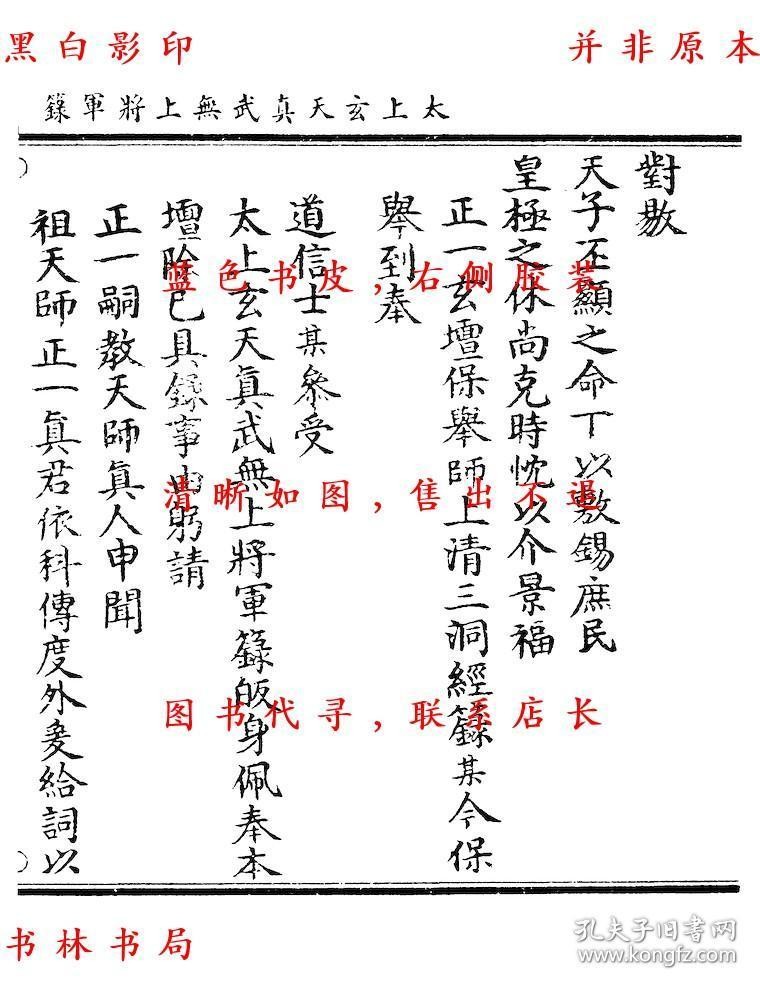 黑白影印
并非原本
太上玄天真武無上將軍籙
對敭
天子丕顯之命丁以敷錫庶民
皇極之休尚克時忱以介景福
正一玄壇保舉師上清三洞經籙某今保
舉到奉
道信士某叅受
太上玄天真武無上將軍籙皈身佩奉本
壇除已具錄事由躬請
正一嗣教天師真人申聞
祖天師正一真君依科傳度外爰給詞以
蓝色书皮，右侧胶装
清晰如图，售出不退
图书代寻，联系店长
书林书局
孔夫子旧书网
kongfz.com